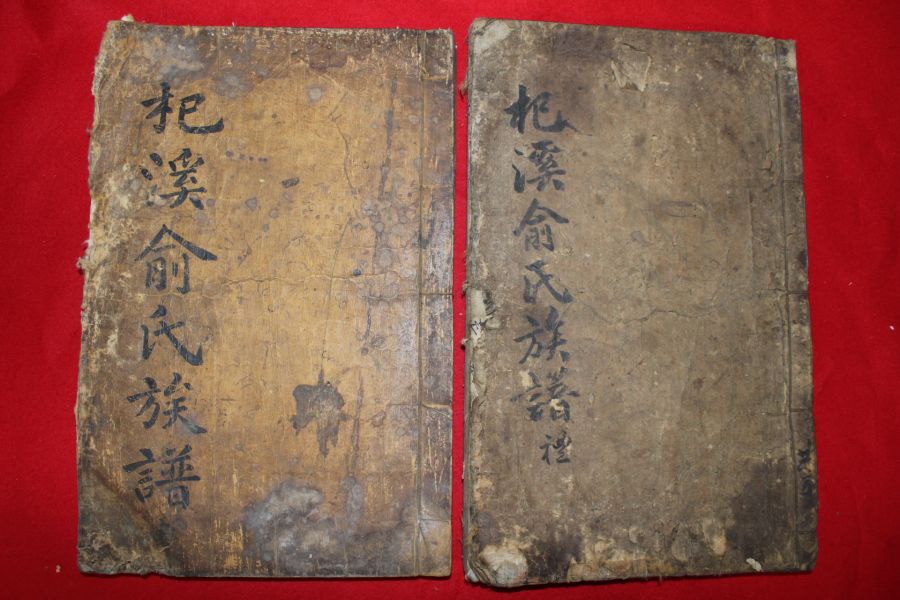 杞溪俞氏族譜
杞溪俞氏族譜 禮